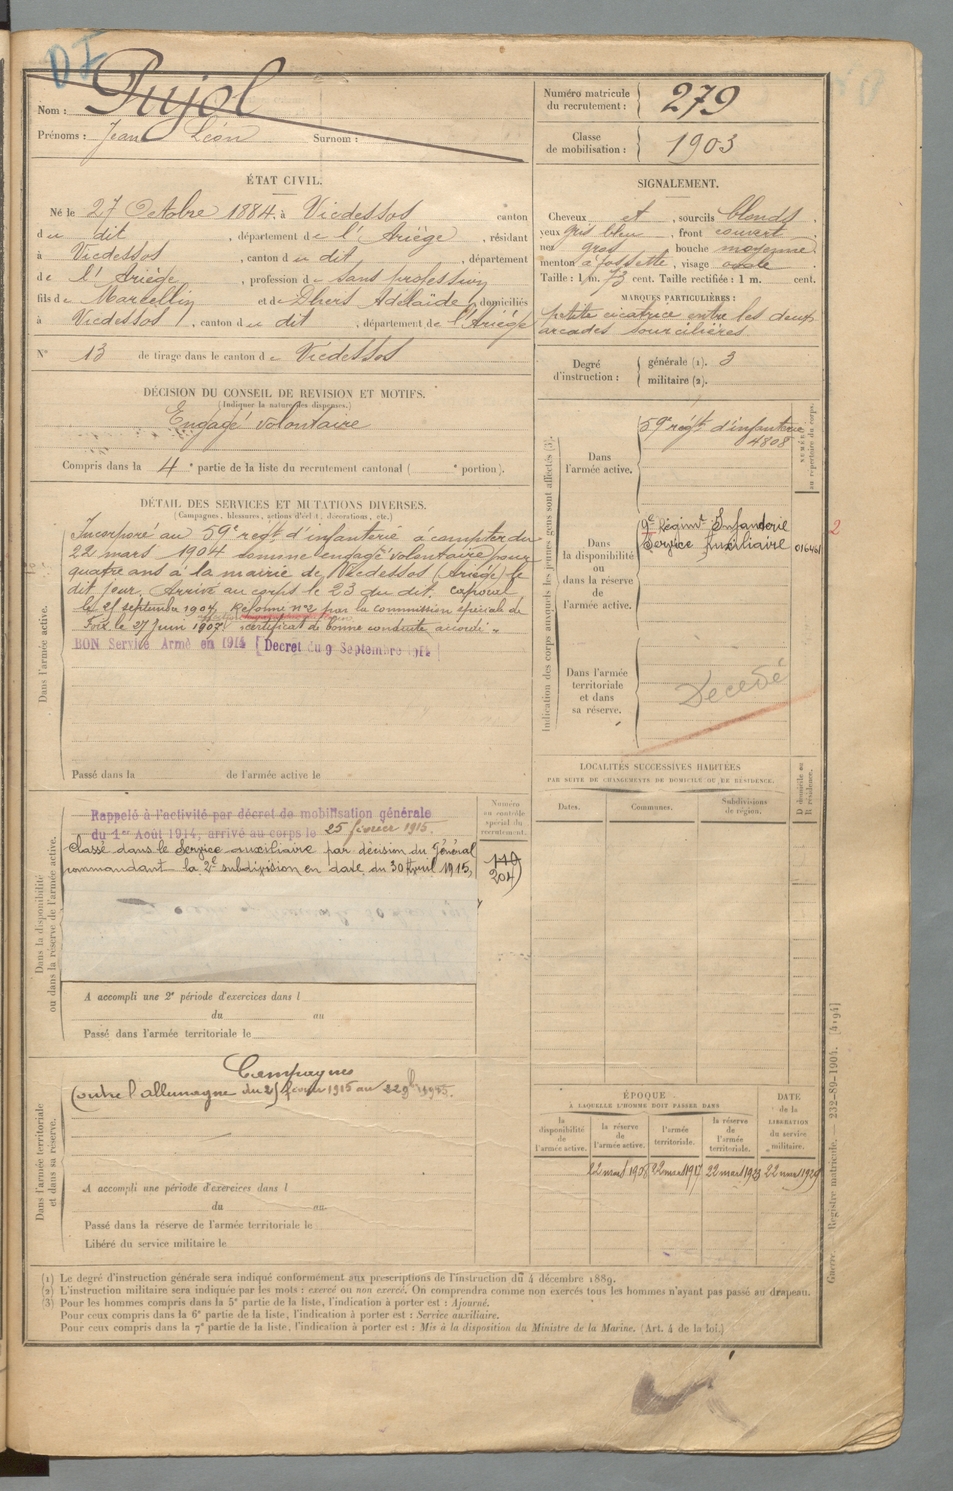 DF
Nom : Pujol
Prénoms : Jean Léon Surnom :
ÉTAT CIVIL.
Né le 27 Octobre 1884, à Vicdessos canton
du dit , département de l'Ariège , résidant
à Vicdessos , canton du dit , département
de l'Ariège , profession de sans profession
fils de Marcellin et de Dhers Adélaïde , domiciliés
à Vicdessos , canton du dit , département de l'Ariège
N° 13 de tirage dans le canton de Vicdessos
DÉCISION DU CONSEIL DE REVISION ET MOTIFS.
(Indiquer la nature des dispenses.)
Engagé volontaire
Compris dans la 4e partie de la liste du recrutement cantonal ( e portion).
Numéro matricule
du recrutement : 279
Classe
de mobilisation : 1903
SIGNALEMENT.
Cheveux et , sourcils blonds .
yeux gris bleu , front couvert .
nez gros , bouche moyenne
menton à fossette , visage ovale .
Taille : 1 m. 73 cent. Taille rectifiée : 1 m. cent.
MARQUES PARTICULIÈRES :
petite cicatrice entre les deux
arcades sourcilières.
Degré
d'instruction :
générale (1). 3
militaire (2).
DÉTAIL DES SERVICES ET MUTATIONS DIVERSES.
(Campagnes, blessures, actions d'éclat, décorations, etc.)
Dans l'armée active.
Incorporé au 59e régt d'infanterie à compter du
22 mars 1904 comme engagé volontaire pour
quatre ans à la mairie de Vicdessos (Ariège) le
dit jour. Arrivé au corps le 23 du dit. caporal
le 21 septembre 1904. Réformé n°2 par la commission spéciale de
Foix le 27 Juin 1907. certificat de bonne conduite accordé.
BON Service Armé en 1914 [Decret du 9 Septembre 1914]
Passé dans la de l'armée active le
Indication des corps auxquels les jeunes gens sont affectés (3).
NUMÉRO
au répertoire du corps.
Dans
l'armée active.
59e régt d'infanterie
4808
Dans
la disponibilité
ou
dans la réserve
de
l'armée active.
9e Régimt Infanterie
Service Auxiliaire 016461
2
Dans l'armée
territoriale
et dans
sa réserve.
Décédé
LOCALITÉS SUCCESSIVES HABITÉES
PAR SUITE DE CHANGEMENTS DE DOMICILE OU DE RÉSIDENCE.
Dates. Communes. Subdivisions
de région.
D domicile ou
R résidence.
Dans la disponibilité
ou dans la réserve de l'armée active.
Rappelé à l'activité par décret de mobilisation générale
du 1er Août 1914, arrivé au corps le 25 février 1915.
Classé dans le Service auxiliaire par décision du Général
commandant la 2e subdivision en date du 30 Avril 1915.
Numéro
au contrôle
spécial du
recrutement.
204
A accompli une 2e période d'exercices dans l
du au
Passé dans l'armée territoriale le
Dans l'armée territoriale
et dans sa réserve.
Campagnes
Contre l'allemagne du 25 février 1915 au 22 9bre 1915.
A accompli une période d'exercices dans l
du au
Passé dans la réserve de l'armée territoriale le
Libéré du service militaire le
ÉPOQUE
À LAQUELLE L'HOMME DOIT PASSER DANS
DATE
de la
LIBÉRATION
du service
militaire.
la
disponibilité
de
l'armée active.
la réserve
de
l'armée active.
l'armée
territoriale.
la réserve
de
l'armée
territoriale.
22 mars 1908 22 mars 1917 22 mars 1923 22 mars 1929
Guerre. — Registre matricule. — 232-89-1904. [4194]
(1) Le degré d'instruction générale sera indiqué conformément aux prescriptions de l'instruction du 4 décembre 1889.
(2) L'instruction militaire sera indiquée par les mots : exercé ou non exercé. On comprendra comme non exercés tous les hommes n'ayant pas passé au drapeau.
(3) Pour les hommes compris dans la 5e partie de la liste, l'indication à porter est : Ajourné.
Pour ceux compris dans la 6e partie de la liste, l'indication à porter est : Service auxiliaire.
Pour ceux compris dans la 7e partie de la liste, l'indication à porter est : Mis à la disposition du Ministre de la Marine. (Art. 4 de la loi.)